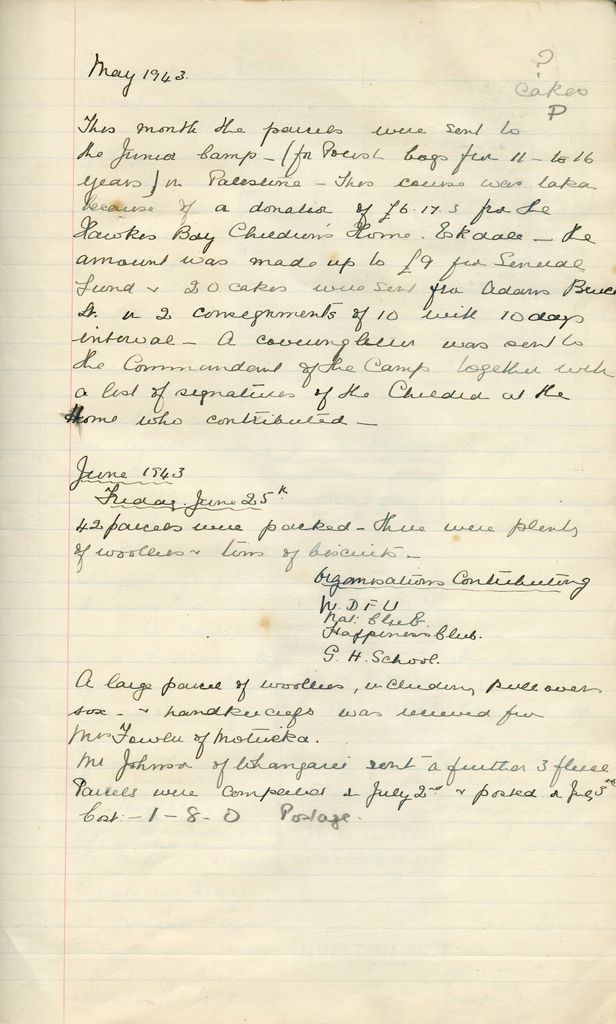 May 1943.
?
Cakes
P
This month the parcels were sent to
the Junior Camp - (for Polish boys from 11 - to 16
years) in Palestine - This course was taken
because of a donation of £6.17.3 from the
Hawkes Bay Children's Home. Eskdale - the
amount was made up to £9 from General
Fund & 20 cakes were sent from Adams Bruce
Lt. in 2 consignments of 10 with 10 days
interval - A covering letter was sent to
the Commandant of the Camp together with
a list of signatures of the Children at the
Home who contributed -
June 1943
Friday June 25th
42 parcels were packed - there were plenty
of woollies & tins of biscuits -
Organisations Contributing
W.D.F.U
Nat. Club.
Happiness Club.
G. H. School.
A large parcel of woollies, including pullovers
sox - & handkerchiefs was received from
Mrs Fowler of Motueka.
Mr Johnson of Whangarei sent a further 3
Parcels were completed on July 2nd & posted on July 5th
Cost - 1 - 8 - 0 Postage.